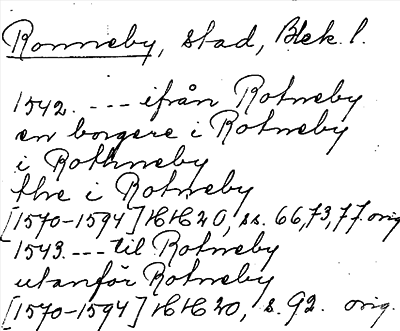 Ronneby, stad, Blek. l.
1542. --- ifrån Rotneby
en borgere i Rotneby
i Rothneby
the i Rotneby
[1570-1594] HH 20, ss. 66, 73, 77. orig
1543. --- til Rotneby
utanför Rotneby
[1570-1594] HH 20, s. 92. orig.